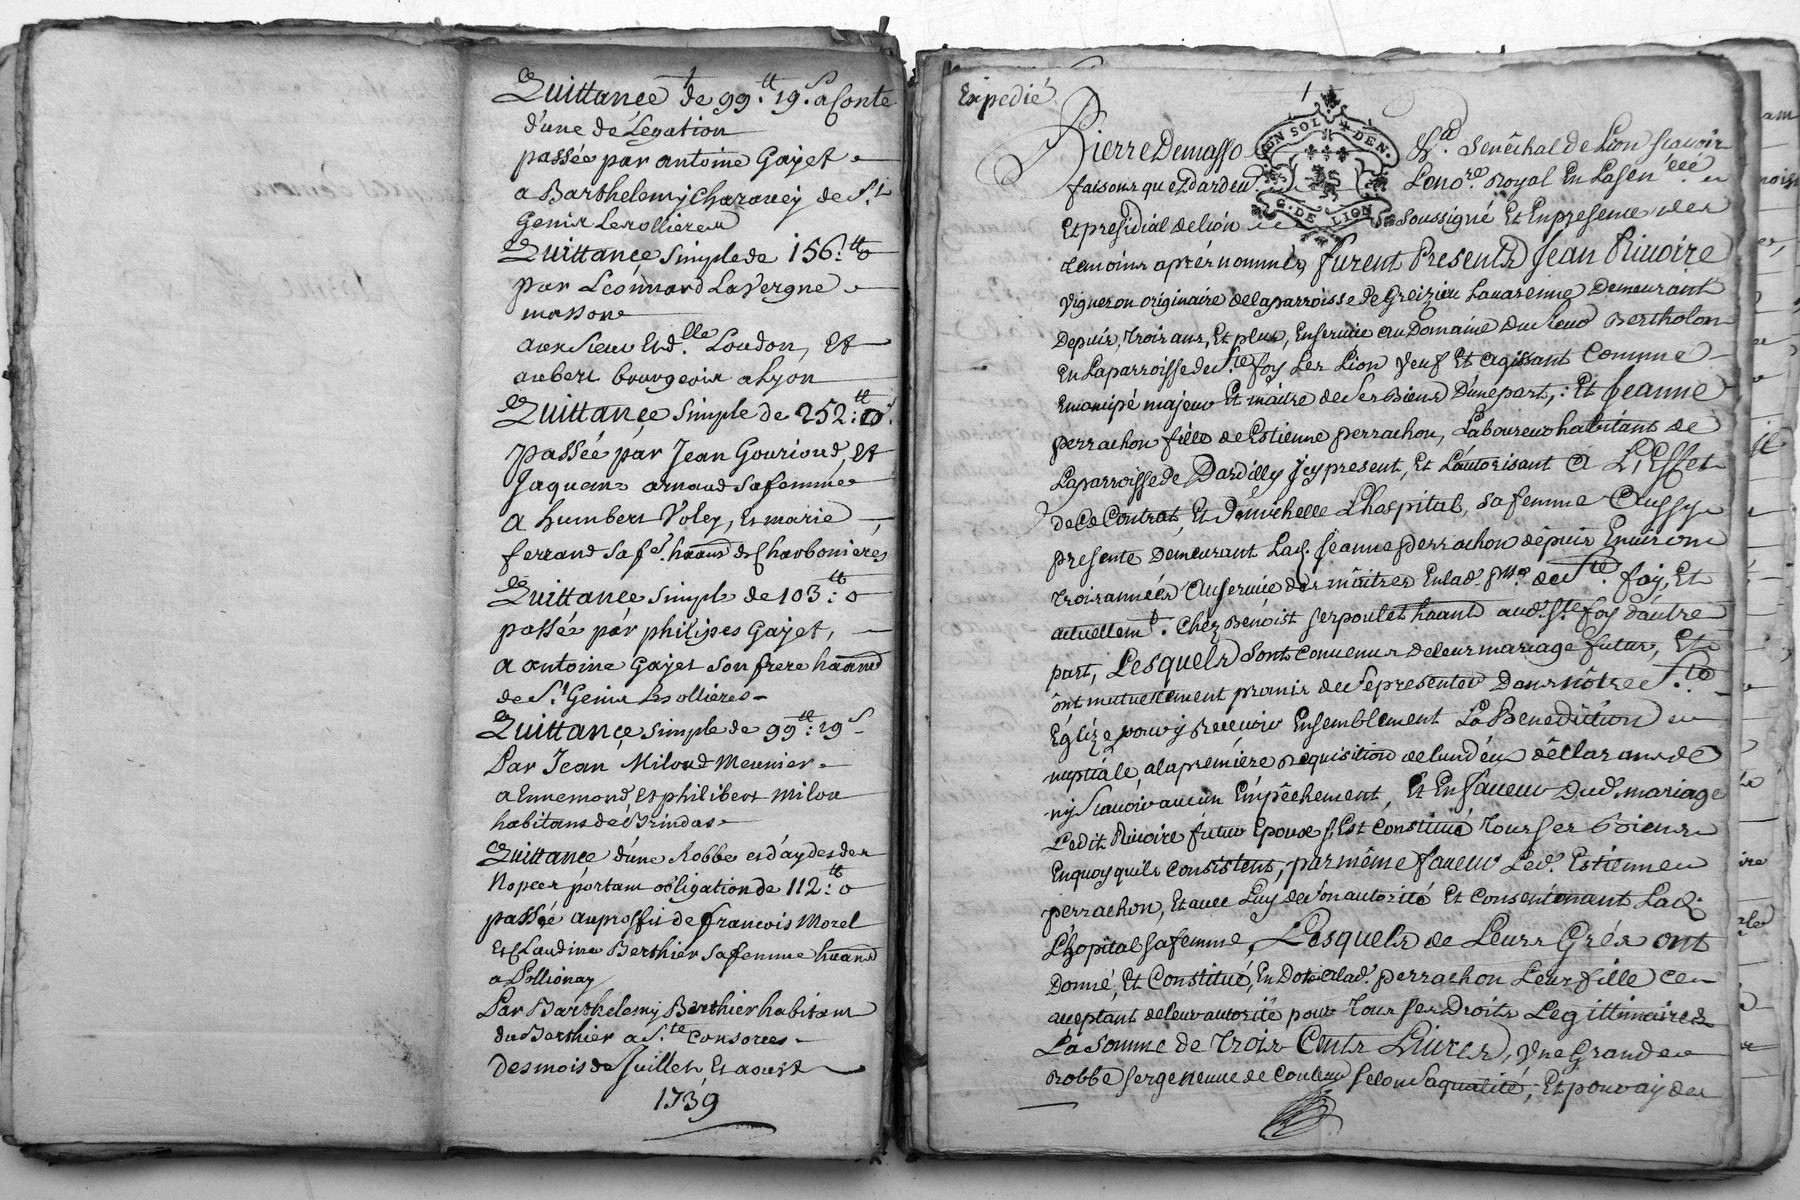 Quittance de 99.tt 19.s a Conte
d'une de Legation
passée par antoine Gayet
a Barthelemy Charavey de St
Genis Lesollieres
Quittance simple de 156.tt 0
par Léonnard LaVergne
masson
aux sieur Et d.lle Loudon, Et
aubert bourgeois a Lyon
Quittance simple de 252:tt 0s
passée par Jean Gourioud, Et
Jaquema arnaud sa femme
a humbert Voley, Et marie
ferrand sa fe. haant de Charbonieres
Quittance simple de 103:tt 0
passée par philipes Gayet,
a antoine Gayet son frere haant
de St Genis Les ollieres
Quittance simple de 99tt: 19s
Par Jean Miloud Meunier
a Ennemond, et philibert milou
habitans de Brindas
Quittance d'une Robbe et d'aydes des
Nopces portant obligation de 112:tt 0
passée au proffit de francois Morel
Et Claudine Berthier sa femme haant
a Pollionay
Par Barthelemy Berthier habitant
du Berthier a S.te Consorces
Des mois de Juillet Et aoust
1739
Expedié
1
EN SOL. DEN.
G. DE LION
Pierre Demasso Sénéchal de Lion scavoir
faisons que Pardev.t Leno.re Royal En Lasen.ceé
Et presidial de lion soussigné Et En presence des
temoins aprés nommés furent Presents Jean Rivoire
Vigneron originaire de la parroisse de Greizieu Lavarenne Demeurant
Depuis, trois ans, Et plus, En service au Domaine du sieur Bertholon
En La parroisse de Ste foy Les Lion Veuf Et agissant Comme
Emancipé majeur Et maitre de ses Biens D'une part,: Et Jeanne
perrachon fille de Estienne perrachon, Laboureur habitant de
La parroisse de Dardilly Jcy present, Et L'autorisant a L'Effet
de Ce Contrat, Et De michelle Lhospital, sa femme Aussy
presente Demeurant Lad. Jeanne perrachon dépuis Environ
trois années Au service des maîtres En lad. p.sse de Ste foy, Et
actuellem.t Chez Benoist serpoulet haant aud. Ste foy d'autre
part, Lesquels sont Convenus de leur mariage futur, Et
ônt mutuellement promis de se presenter Dans nôtre S.te
Eglize pour y Recevoir Ensemblement La Benediction
nuptiale, a la premiere Requisition de lun d'eux déclarans de
ny scavoir aucun Empêchement, Et En faveur Dud. mariage
Ledit Rivoire futur Epoux s'Est Constitué tous ses biens
En quoy quils Consistent, par même faveur Led. Estienne
perrachon, Et avec Luy de son autorité Et Consentement Lad.
L'hopital sa femme, Lesquels de Leurs Grés ont
Donné, Et Constitué, En Dot a lad. perrachon Leur fille
aceptant de leur autorité pour tous ses Droits Legittimaires
La somme de trois Cents Livres, Vne Grande
Robbe serge neuve de Couleur selon sa qualité, Et pour aydes